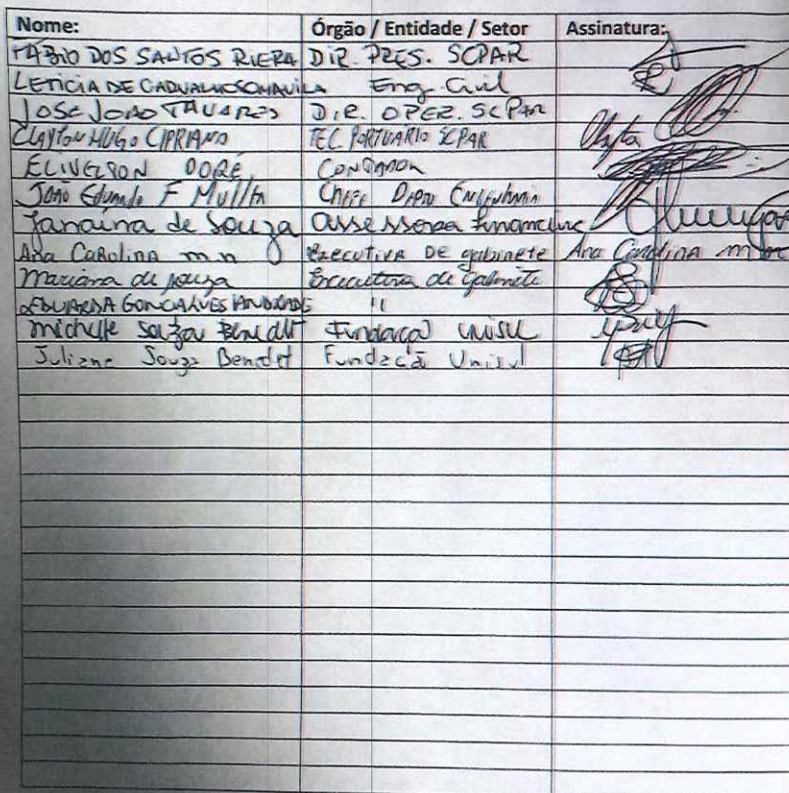 Nome: Órgão / Entidade / Setor Assinatura:
FÁBIO DOS SANTOS RIERA DIR. PRES. SCPAR
LETICIA DE Eng. Civil
JOSE JOAO TAVARES DIR. OPER. SCPAR
CLAYTON HUGO CIPRIANO TEC PORTUARIO SCPAR Clayton
ELIVELSON DORÉ CONTADOR
João Eduardo F Chefe Depto Engenharia
Janaina de Souza assessora
Ana CaRolina m n Executiva DE gabinete Ana Carolina m
Mariana de souza Executiva de Gabinete
EDUARDA GONCALVES ANDRADE 11
michelle souza Benedet Fundacao unisul
Juliane Souza Benedet Fundacã Unisul